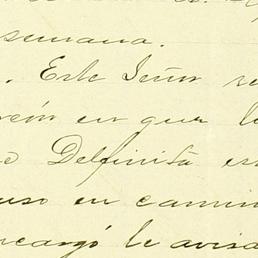 semana.
. Este Señor se
en que l
Delfinita es
uso en camin
ncargó le avisa